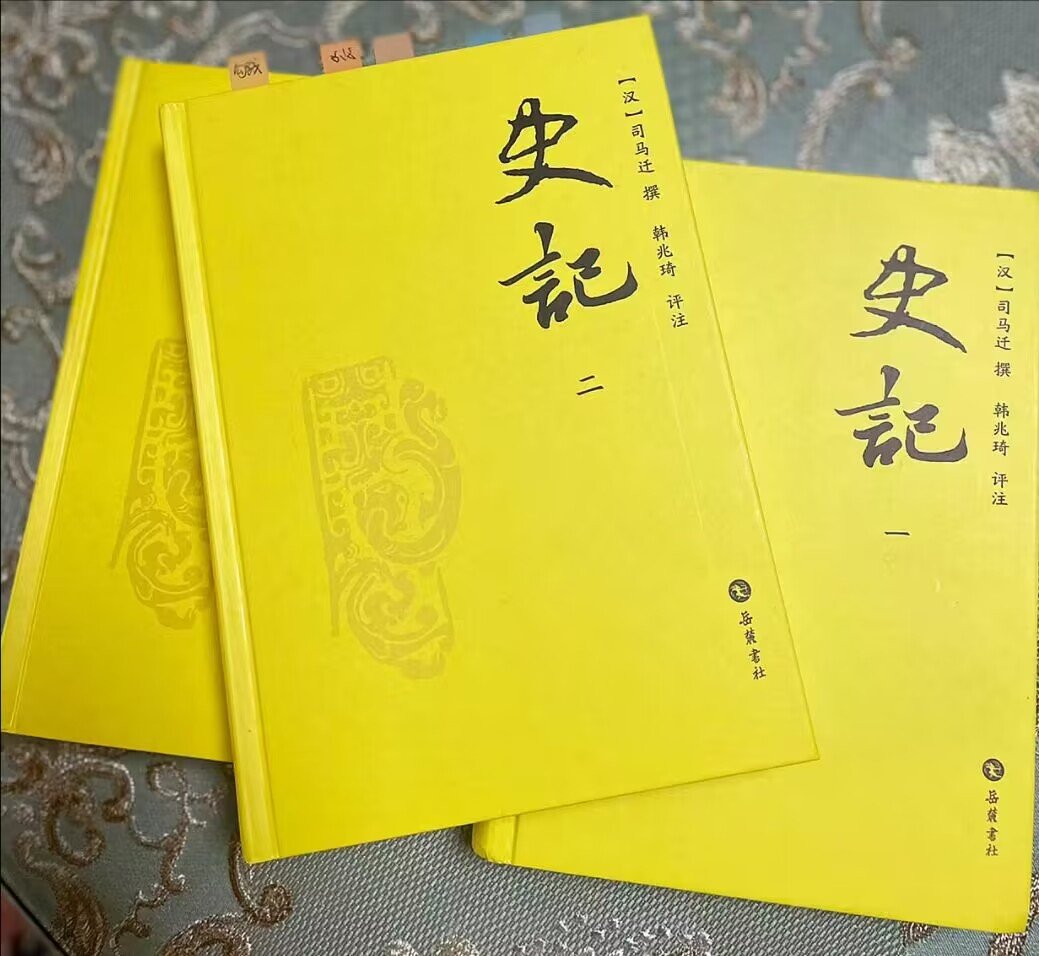 史記
二
【汉】司马迁 撰 韩兆琦 评注
岳麓書社
史記
一
【汉】司马迁 撰 韩兆琦 评注
岳麓書社